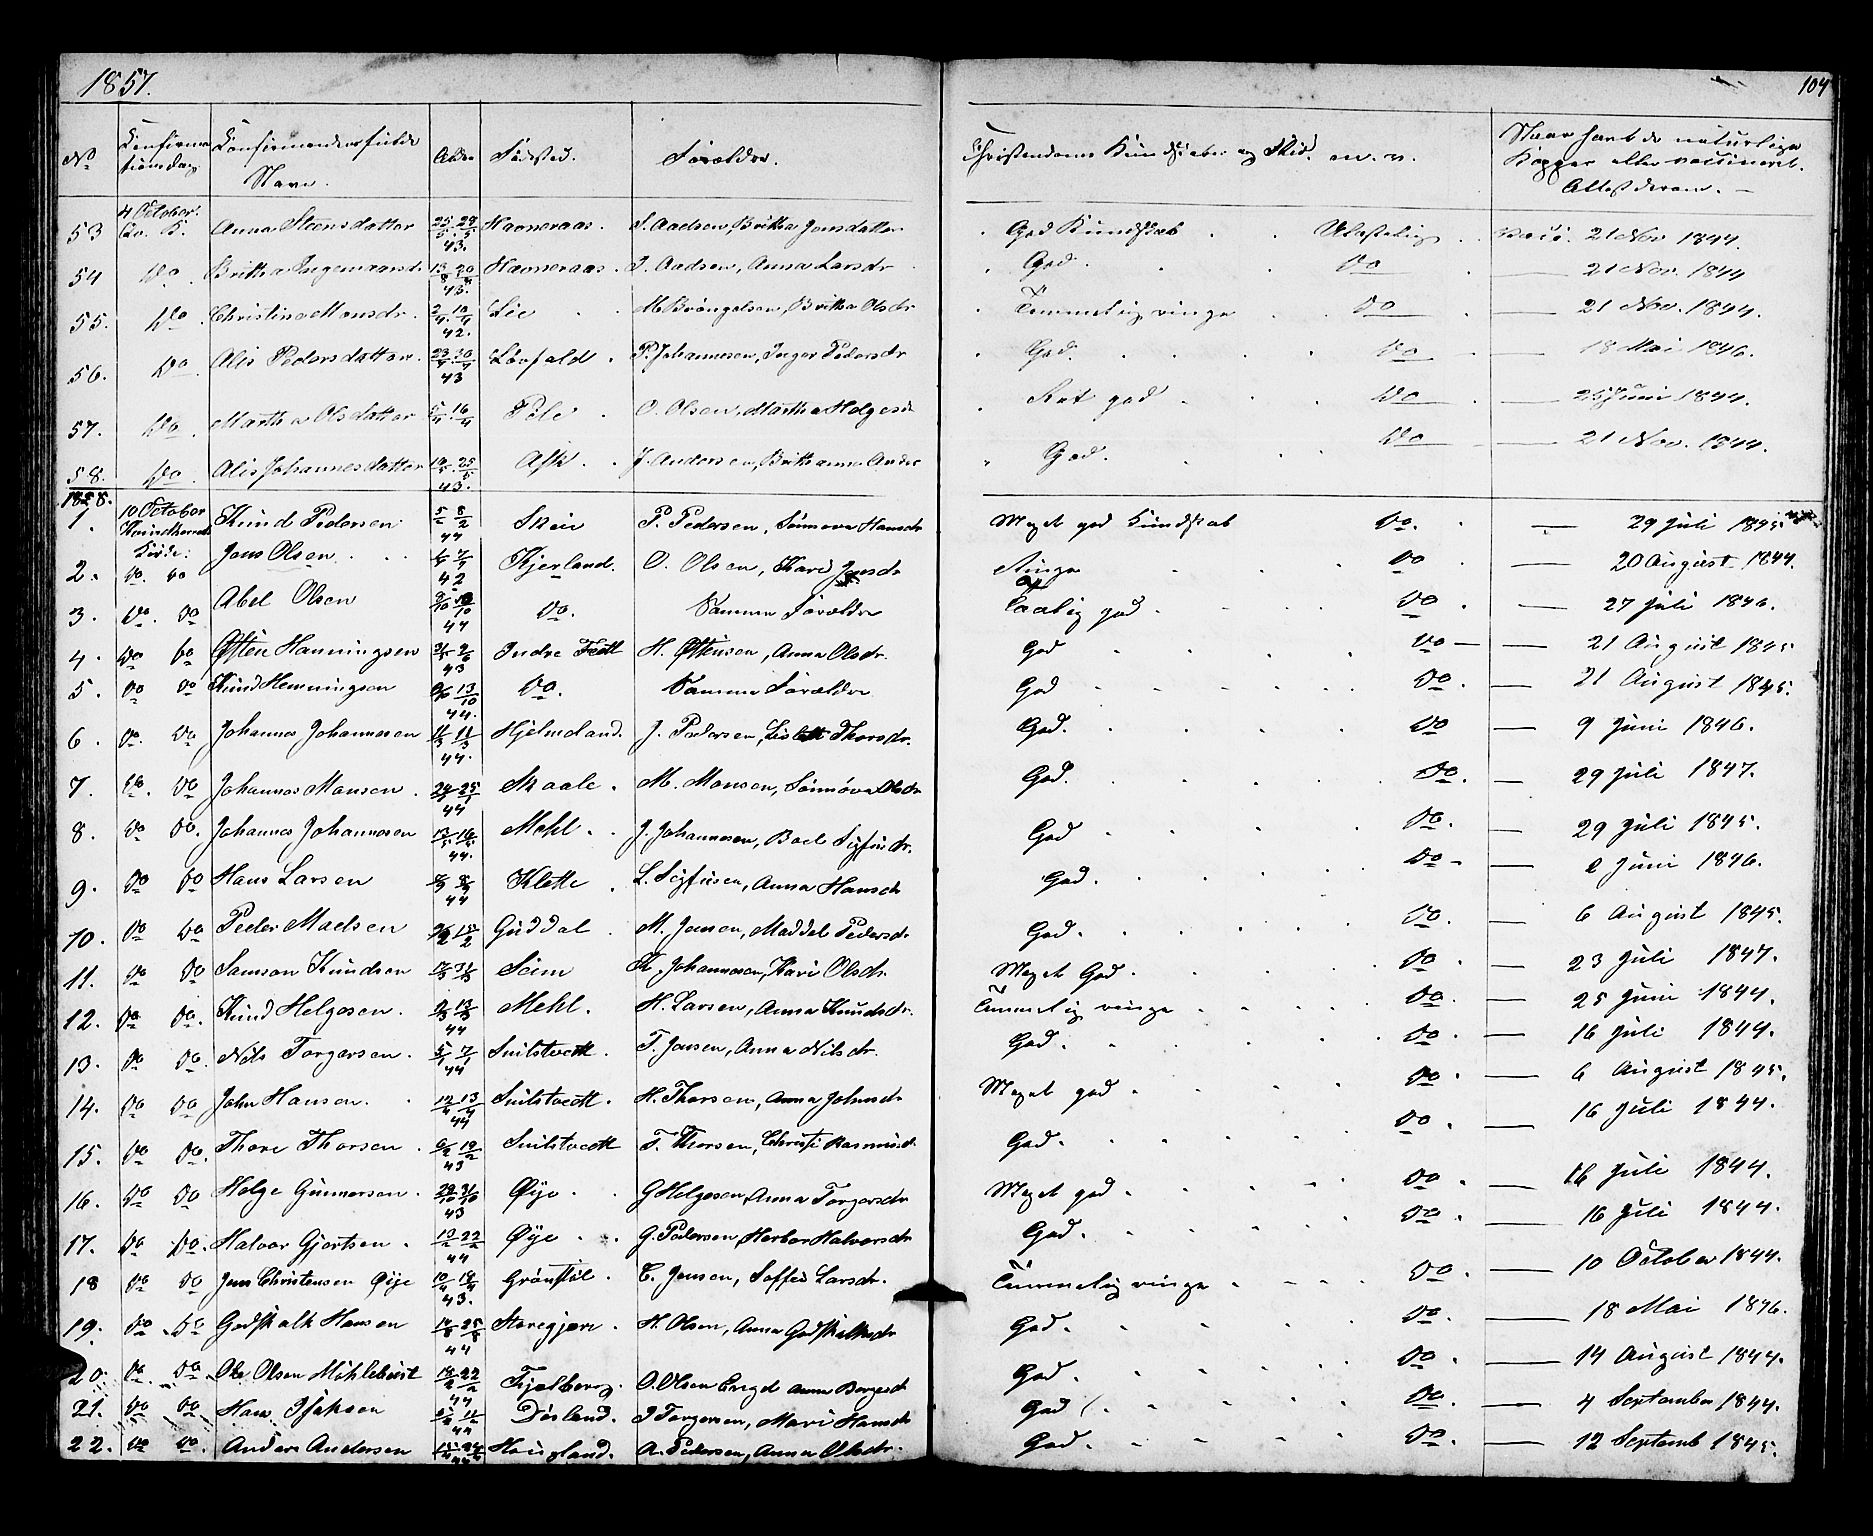 1857.
104
No
Confirmationsdag
Confirmandens fulde Navn.
Alder
Fødested.
Forældre.
Christendoms Kundskaber og Flid. m. v.
Naar havt de naturlige Kopper eller vaccineret. Attest derom. —
53 4 October. Qv. K. Anna Steensdatter 43. Havneraas. S. Aadsen, Britha Jonsdatter God Kundskab Ulastelig vacc. 21 Nov 1844.
54 do Britha Ingemansd. 43. Havneraas. I. Aadsen, Anna Larsdr God. do 21 Nov. 1844
55. do. Christina Monsdr. 42. Lie M. Brÿngelsen, Britha Olsdr Temmelig ringe do 21 Nov. 1844.
56. do. Alis Pedersdatter 43 Løvfald. P. Johannesen, Inger Pedersdr God. do 18 Mai 1846.
57. do. Martha Olsdatter O. Olsen, Martha Helgesd Ret god do 25 Juni 1844.
58. do. Alis Johannesdatter 43. Ask. J. Andersen, Brithanna Anders God. do 21 Nov. 1844.
1858.
1. 10 October Kirke: Knud Pedersen 44 Skeie P. Pedersen, Sønneva Hansdr Meget god Kundskab do. — 29 Juli 1845
2. do. do Jens Olsen. 42 Kjerland. O. Olsen, Kari Jonsdr Ringe do — 20 August 1844.
3. do. do Abel Olsen 44 do. Samme Forældre Taalig god do. — 27 Juli 1846.
4. do do Østen Henningsen 43 Indre Tedt H. Østensen, Anna Olsdr. God do — 21 August 1845
5. do do Knud Henningsen 13/10 44. do. Samme Forældre God do. — 21 August 1845.
6. do. do Johannes Johannesen 11/3 44. Hjelmeland. J. Pedersen, Lisbett Thorsdr. God. do — 9 Juni 1846.
7. do. do Johannes Monsen. 44 Skaale. M. Monsen, Sønnøva Olsdr God. do. — 29 Juli 1847.
8. do do. Johannes Johannesen 44. Mehl. J. Johannesen, Boel Sigfusdr. God do. — 29 Juli 1845.
9. do do Hans Larsen 44 Klette. L. Sigfusen, Anna Hansdr God. do. — 2 Juni 1846.
10. do do Peder Madsen 15/2 Guddal. M. Jensen, Maddel Pedersdr God. do. — 6 August 1845.
11. do do Samson Knudsen Seim K. Johannesen, Kari Olsdr. Meget God. do. — 23 Juli 1847.
12. do do. Knud Helgesen. 44 Mehl. H. Larsen, Anna Knudsdr. Temmelig ringe do. — 25 Juni 1844.
13. do do. Nils Torgersen. 7/1 44 Snilstvedt. T. Jensen, Anna Nilsdr. God. do. — 16 Juli 1844.
14. do do John Hansen. 13/4 44 Snilstvedt. H. Thorsen, Anna Johnsdr Meget god do. — 6 August 1845.
15. do do. Thore Thorsen. 43 Snilstvedt T. Thorsen, Christi Rasmusd. God. do. — 16 Juli 1844.
16. do do Helge Gunnersen. 43 Øye. G Helgesen, Anna Torgersdr Meget god. do. — 16 Juli 1844.
17. do do. Halvor Gjertsen. 44 Øye. G. Pedersen, Herbor Halversdr God. do. — 16 Juli 1844.
18 do do Jens Christensen Øye 43. Grønstøl. C. Jensen, Soffie Larsdr. Temmelig ringe do. — 10 October 1844.
19. do do Godskalk Hansen 44 Storegjære. H. Olsen, Anna Godskalksdr God. do. — 18 Mai 1846.
20. do. do. Ole Olsen Mehlebust 44 Fjelberg. O. Olsen Engel Anna Borgesdr God. do. — 14 August 1844.
21. do do. Hans Isaksen 44 Døsland. I Torgersen, Mari Hansdr God do. — 4 September 1844.
22. do do. Anders Andersen Haugland. A. Pedersen, Anna Olsdr. God. do. — 12 Septemb 1845.